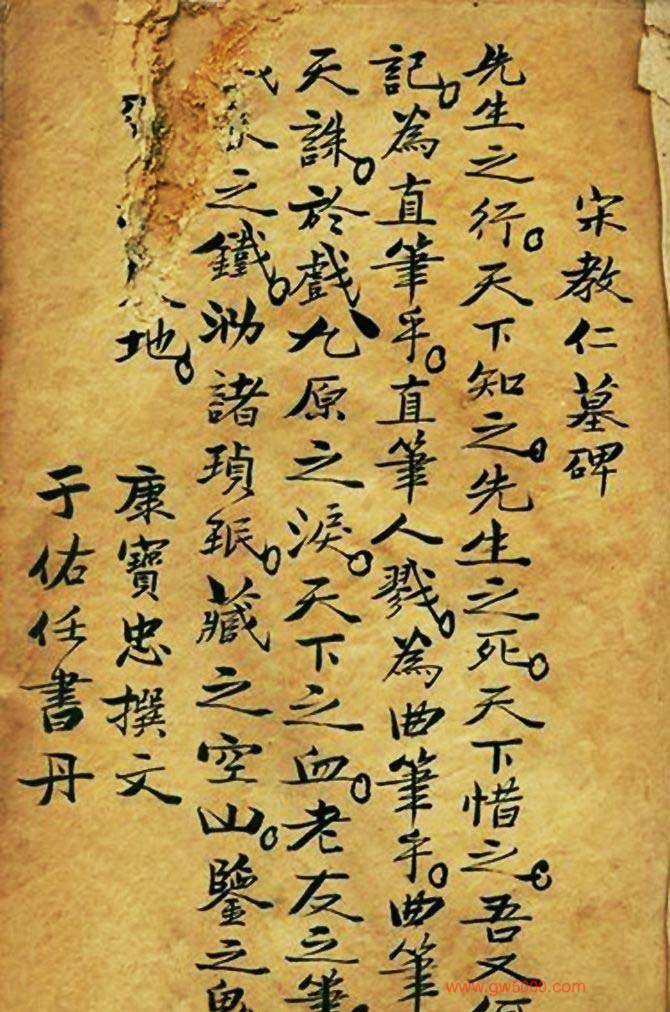 宋教仁墓碑
先生之行。天下知之。先生之死。天下惜之。吾又何
記。為直筆乎。直筆人戮。為曲筆乎。曲筆
天誅。於戲九原之淚。天下之血。老友之筆
之鐵。泐諸瑱珉。藏之空山。鑒之鬼
地。
康寶忠撰文
于佑任書丹
www.gw5000.com